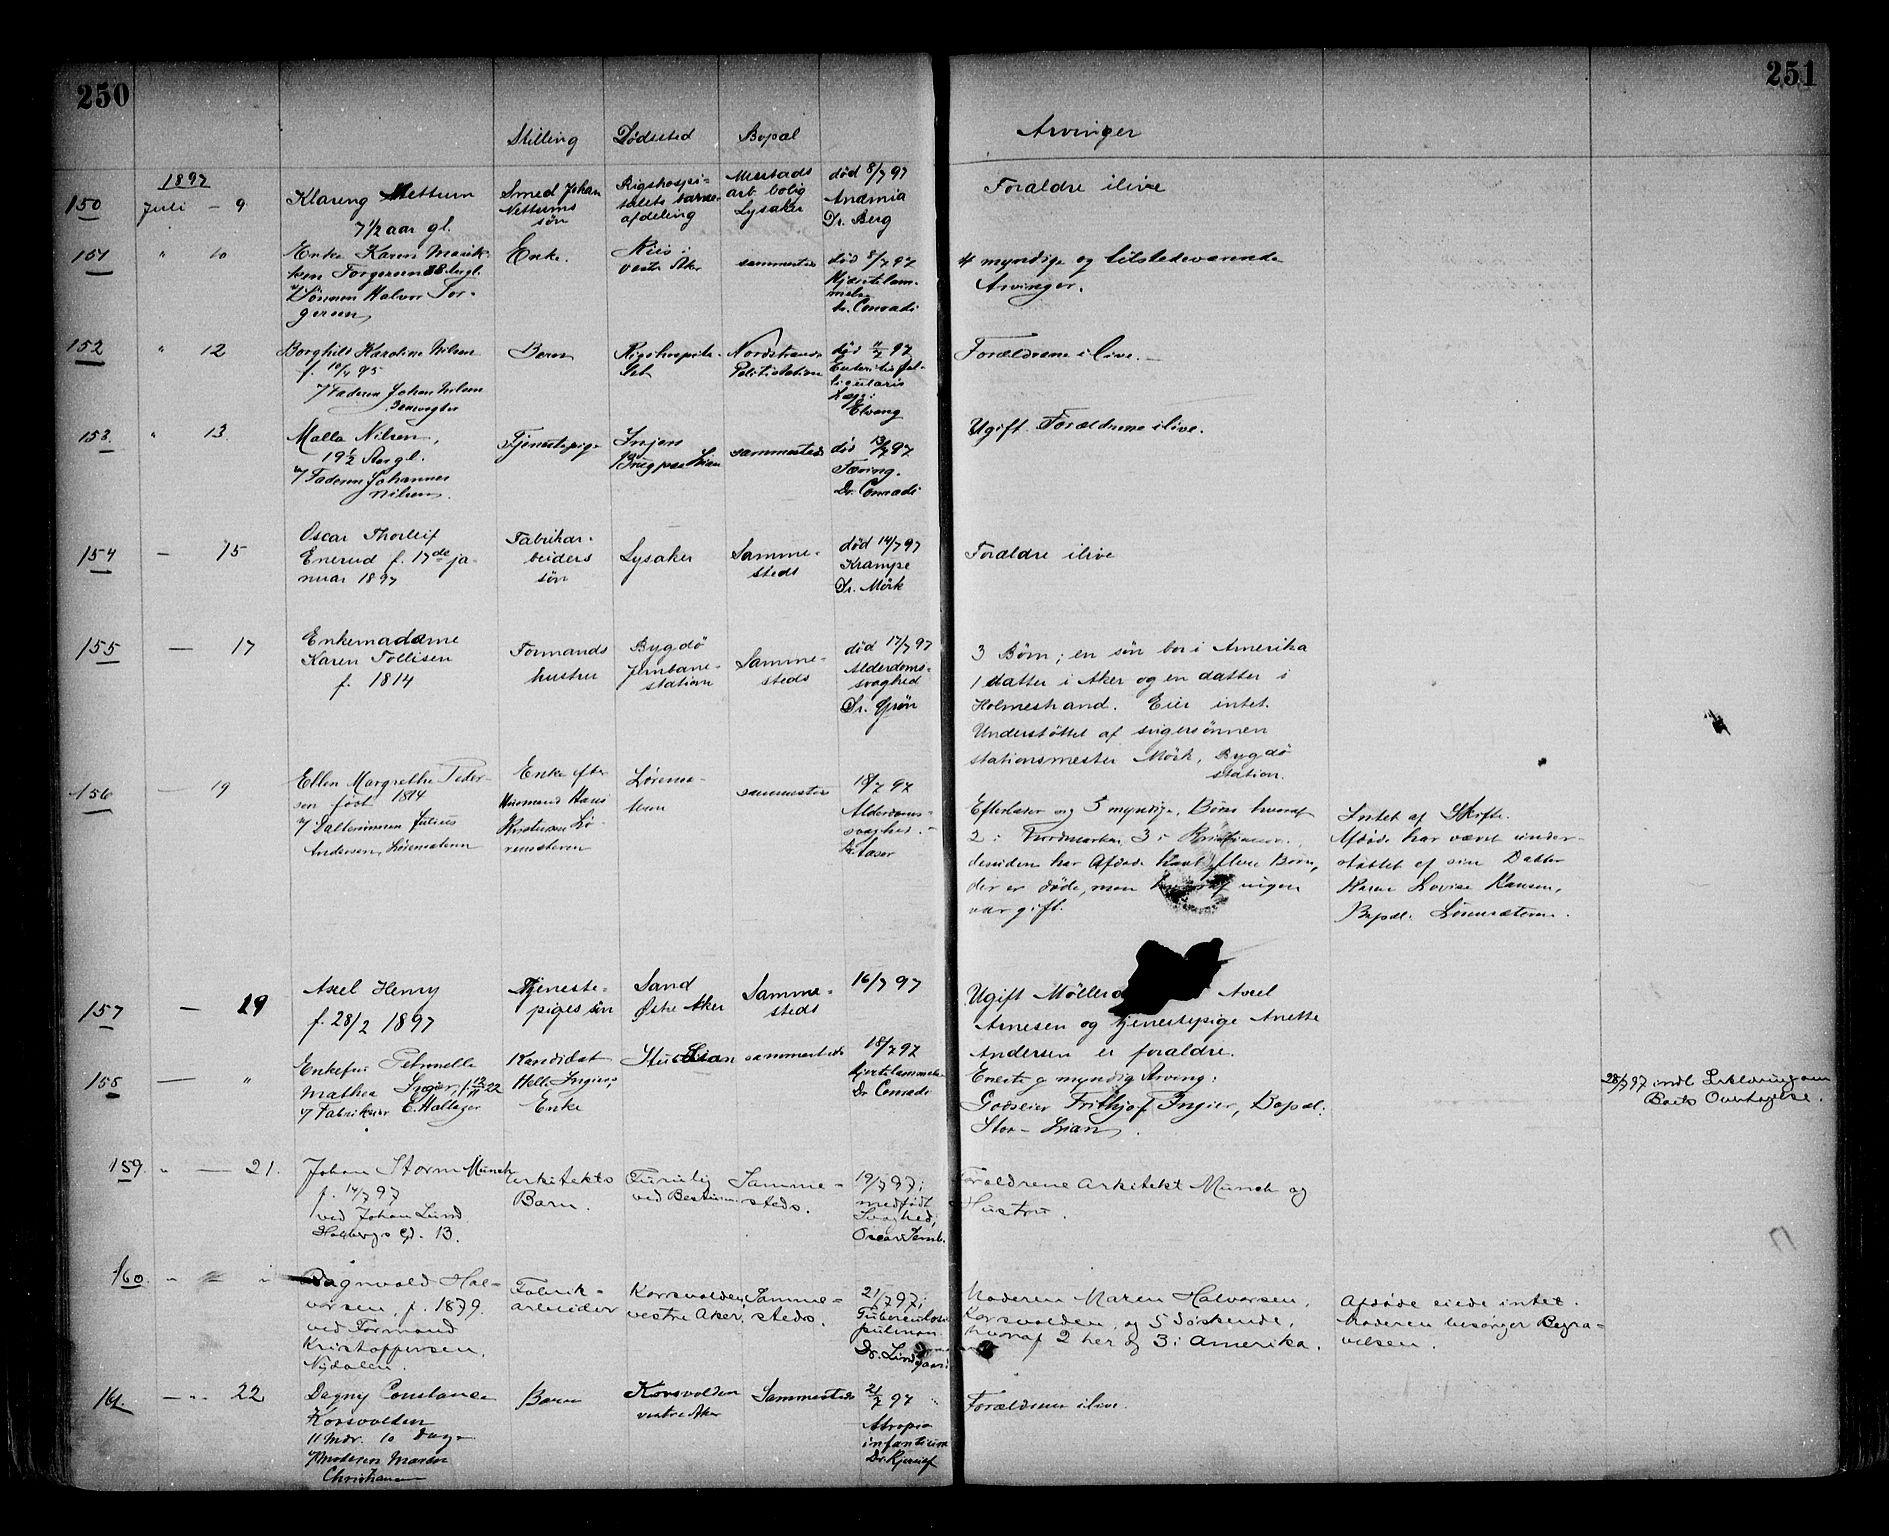 250
251
Stilling Dødssted Bopæl Arvinger
1897
150 Juli - 9
Klareng Nettum
7 1/2 aar gl.
Smed Johan
Nettums
søn
Rigshospi-
talets barne-
afdeling
Mustads
arb. bolig
Lysaker
død 8/7 97
Anæmia
Dr. Berg
Forældre ilive
151 " 10
Enke Karen Marik-
ken Torgersen 88 Aar gl.
v/ Sønnen Halvor Tor-
gersen
Enke.
Riis i
vestre Aker
sammesteds
død 8/7 97
Hjertelam-
melse
Dr. Conradi
4 myndige og tilstedeværende
Arvinger.
152 " 12
Borghild Karoline Nilsen
f. 10/4 95
v/ Faderen Johan Nilsen
Banevogter
Barn
Rigshospita-
let
Nordstrands
Politistation
død 11/7 97
Enteritis fol-
licularis
Læge:
Elvang
Forældrene i live.
153. " 13.
Malla Nilsen,
19 1/2 Aar gl.
v/ Faderen Johannes
Nilsen.
Tjenestepige
Injens
Brug paa Lian
sammesteds
død 13/7 97
Tæring.
Dr. Conradi
Ugift. Forældrene ilive.
154 - 15
Oscar Thorleif
Enerud f. 17de ja-
nuar 1897
Fabrikar-
beiders
søn
Lysaker
Samme-
steds
død 14/7 97
Krampe
Dr. Mörk
Forældre ilive
155 - 17
Enkemadame
Karen Tollisen
f. 1814
Formands
hustru
Bygdö
Jernbane-
station
Samme-
steds
död 17/7 97
Alderdoms-
svaghed
Dr. Grön
3 Børn; en søn bor i Amerika
1 datter i Aker og en datter i
Holmestrand. Eier intet.
Understöttet af svigersönnen
stationsmester Mörk, Bygdö
station.
156 - 19
Ellen Margrethe Peder-
sen født 1814
v/ Dattersønnen Julius
Andersen, Lørensæteren
Enke efter
Husmand Hans
Kristensen Lø-
rensæteren
Lørensæ-
teren
sammesteds
18/7 97
Alderdoms-
svaghed.
Efterlader sig 5 myndige Børn hvoraf
2 i Nordmarken, 3 i Kristiania.
desuden har Afdøde havt flere Børn,
der er døde, men hvoraf ingen
var gift.
Intet af Skifte.
Afdøde har været under-
støttet af sin Datter
Karen Lovise Hansen,
Bopæl. Lørensæteren.
157 - 19
Axel Henry
f. 28/2 1897
Tjeneste-
piges søn
Sand
Østre Aker
Samme-
steds
16/7 97
Ugift Möller Axel
Arnesen og tjenestepige Anette
Andersen er forældre.
158 - "
Enkefru Petronelle
Mathea Ingier, f. 12/11 22
v/ Fabrikeier C. Hallager
Kandidat
Ingiers
Enke
Stu Lian
sammesteds
18/7 97
Hjertelammelse
Dr. Conradi
Eneste g myndig Arving:
Godseier Frithjof Ingier, Bopæl:
Stor-Lian.
28/7 97 indl. Erklæring om
Boets Overtagelse.
159. " - 21.
Johan Storm Munch
f. 14/7 97
ved Johan Lund
Holbergs gd. 13.
Arkitekts
Barn.
Furulig
ved Bestum
Samme-
steds.
19/7 97;
medfødt
Svaghed;
Forældrene Arkitekt Munch og
Hustru.
160. " - "
Dagnvald Hal-
vorsen, f. 1879.
ved Formand
Kristoffersen,
Nydalen.
Fabrik-
arbeider
Korsvolden,
vestre Aker,
Samme-
steds.
21/7 97;
Tuberculosis
pulmon.
Dr. Lindgaard
Moderen Maren Halvorsen,
Korsvolden, og 5 Söskende,
hvoraf 2 her og 3 i Amerika.
Afdøde eiede intet.
Moderen besørger Begra-
velsen.
161. - " 22
Dagny Constance
Korsvolden
11 Mdr. 10 Dage
v/ Moderen Marthe
Christiansen
Barn
Korsvolden
vestre Aker
Sammesteds
21/7 97
Atropia
infantium
Dr. Kjerulf
Forældrene ilive.